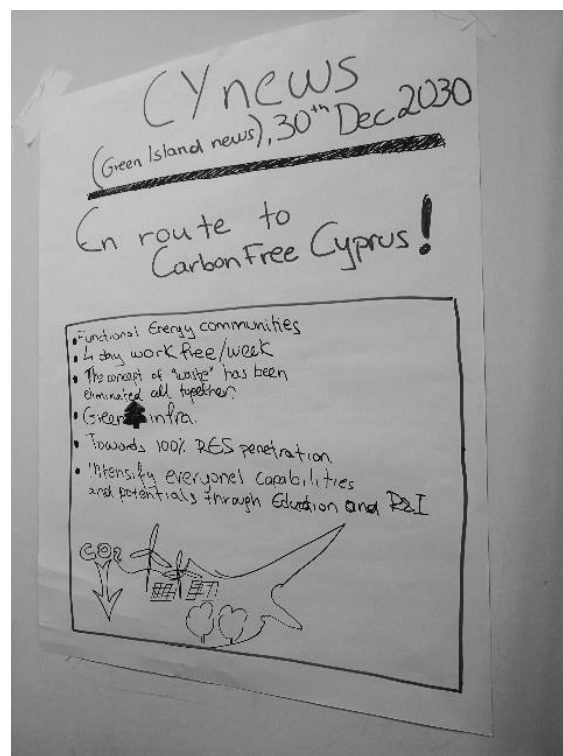 CYnews
(Green Island news), 30th Dec 2030
En route to
Carbon Free Cyprus!
• Functional Energy communities
• 4 day work free/week
• The concept of "waste" has been
eliminated all together.
• Green infra.
• Towards 100% RES penetration
• Intensify everyone's capabilities
and potentials through Education and R&I
CO2